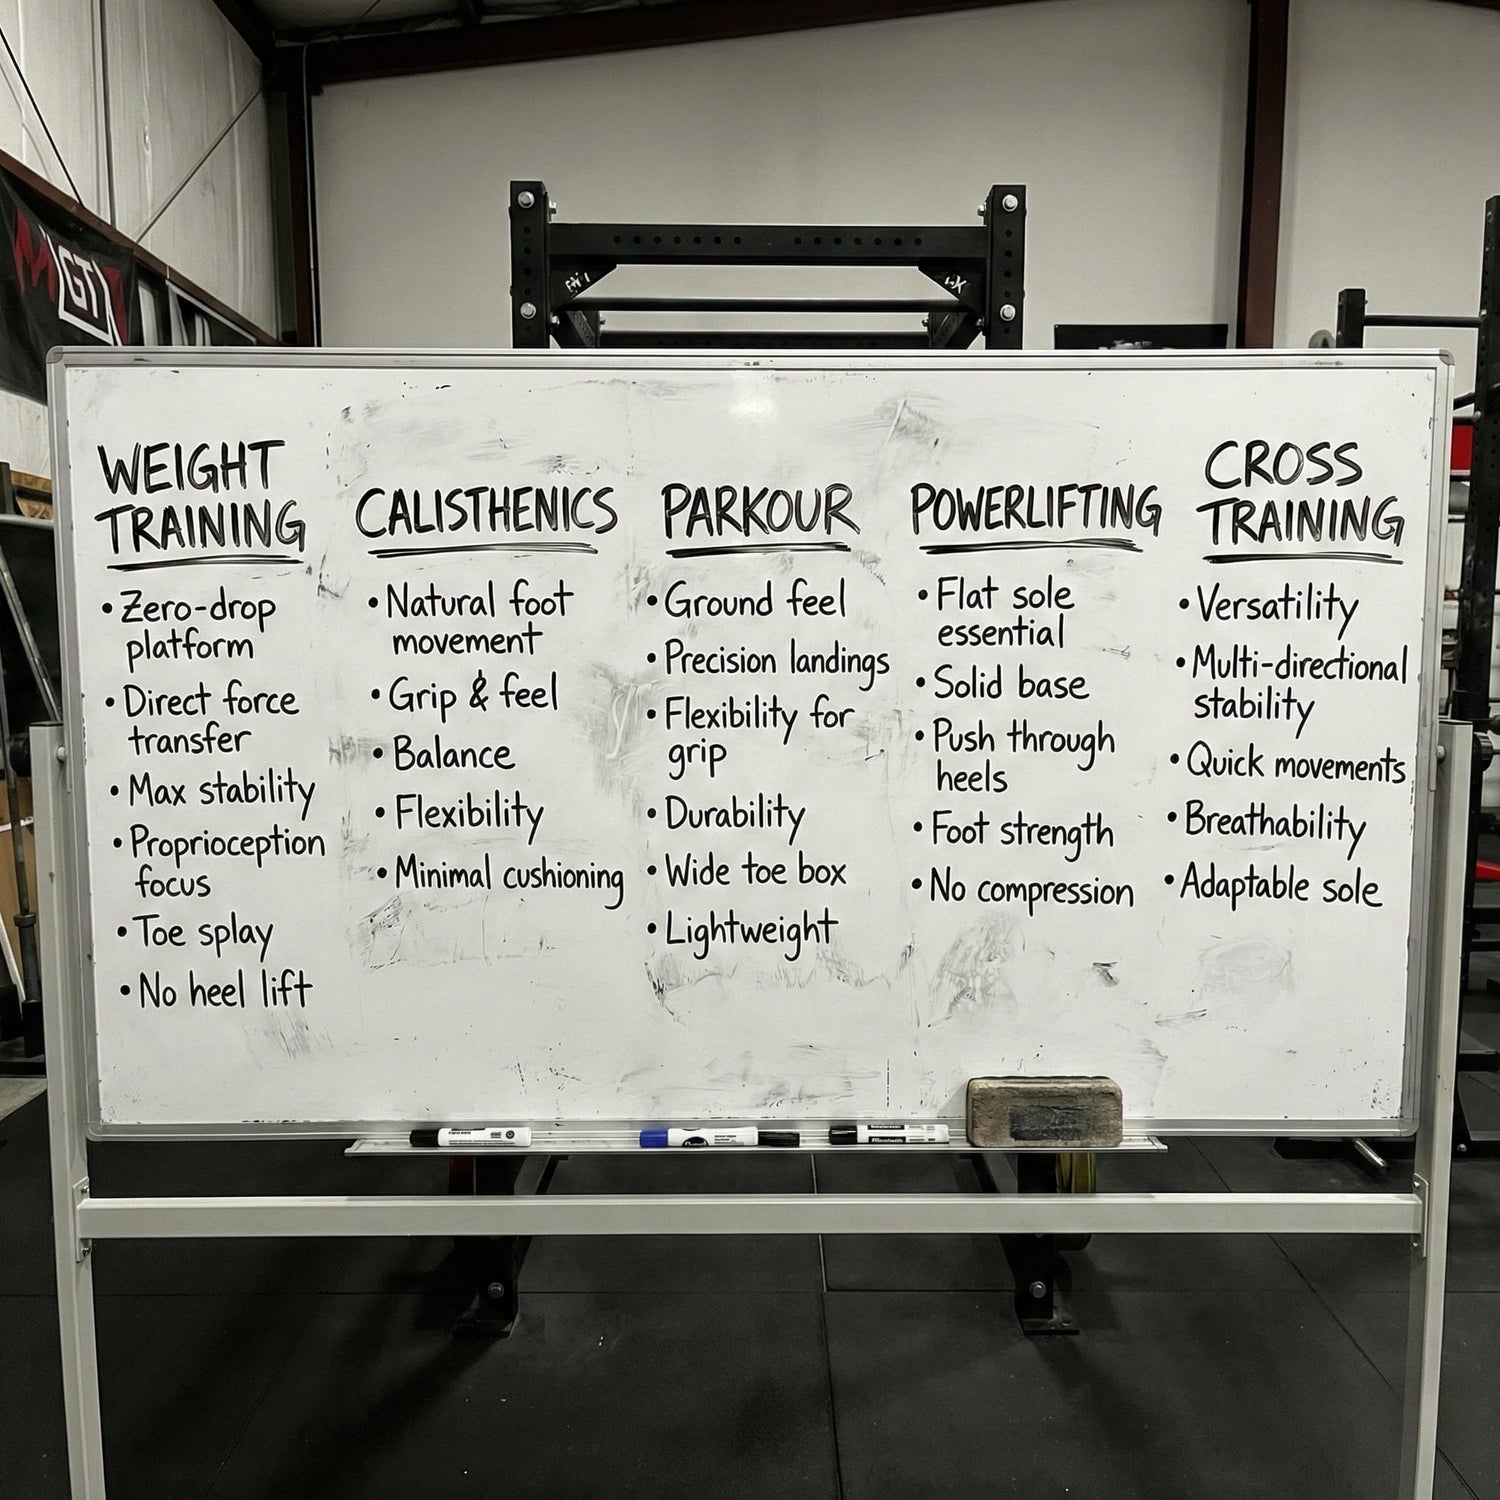 GT
WEIGHT
TRAINING
• Zero-drop
platform
• Direct force
transfer
• Max stability
• Proprioception
focus
• Toe splay
• No heel lift
CALISTHENICS
• Natural foot
movement
• Grip & feel
• Balance
• Flexibility
• Minimal cushioning
PARKOUR
• Ground feel
• Precision landings
• Flexibility for
grip
• Durability
• Wide toe box
• Lightweight
POWERLIFTING
• Flat sole
essential
• Solid base
• Push through
heels
• Foot strength
• No compression
CROSS
TRAINING
• Versatility
• Multi-directional
stability
• Quick movements
• Breathability
• Adaptable sole